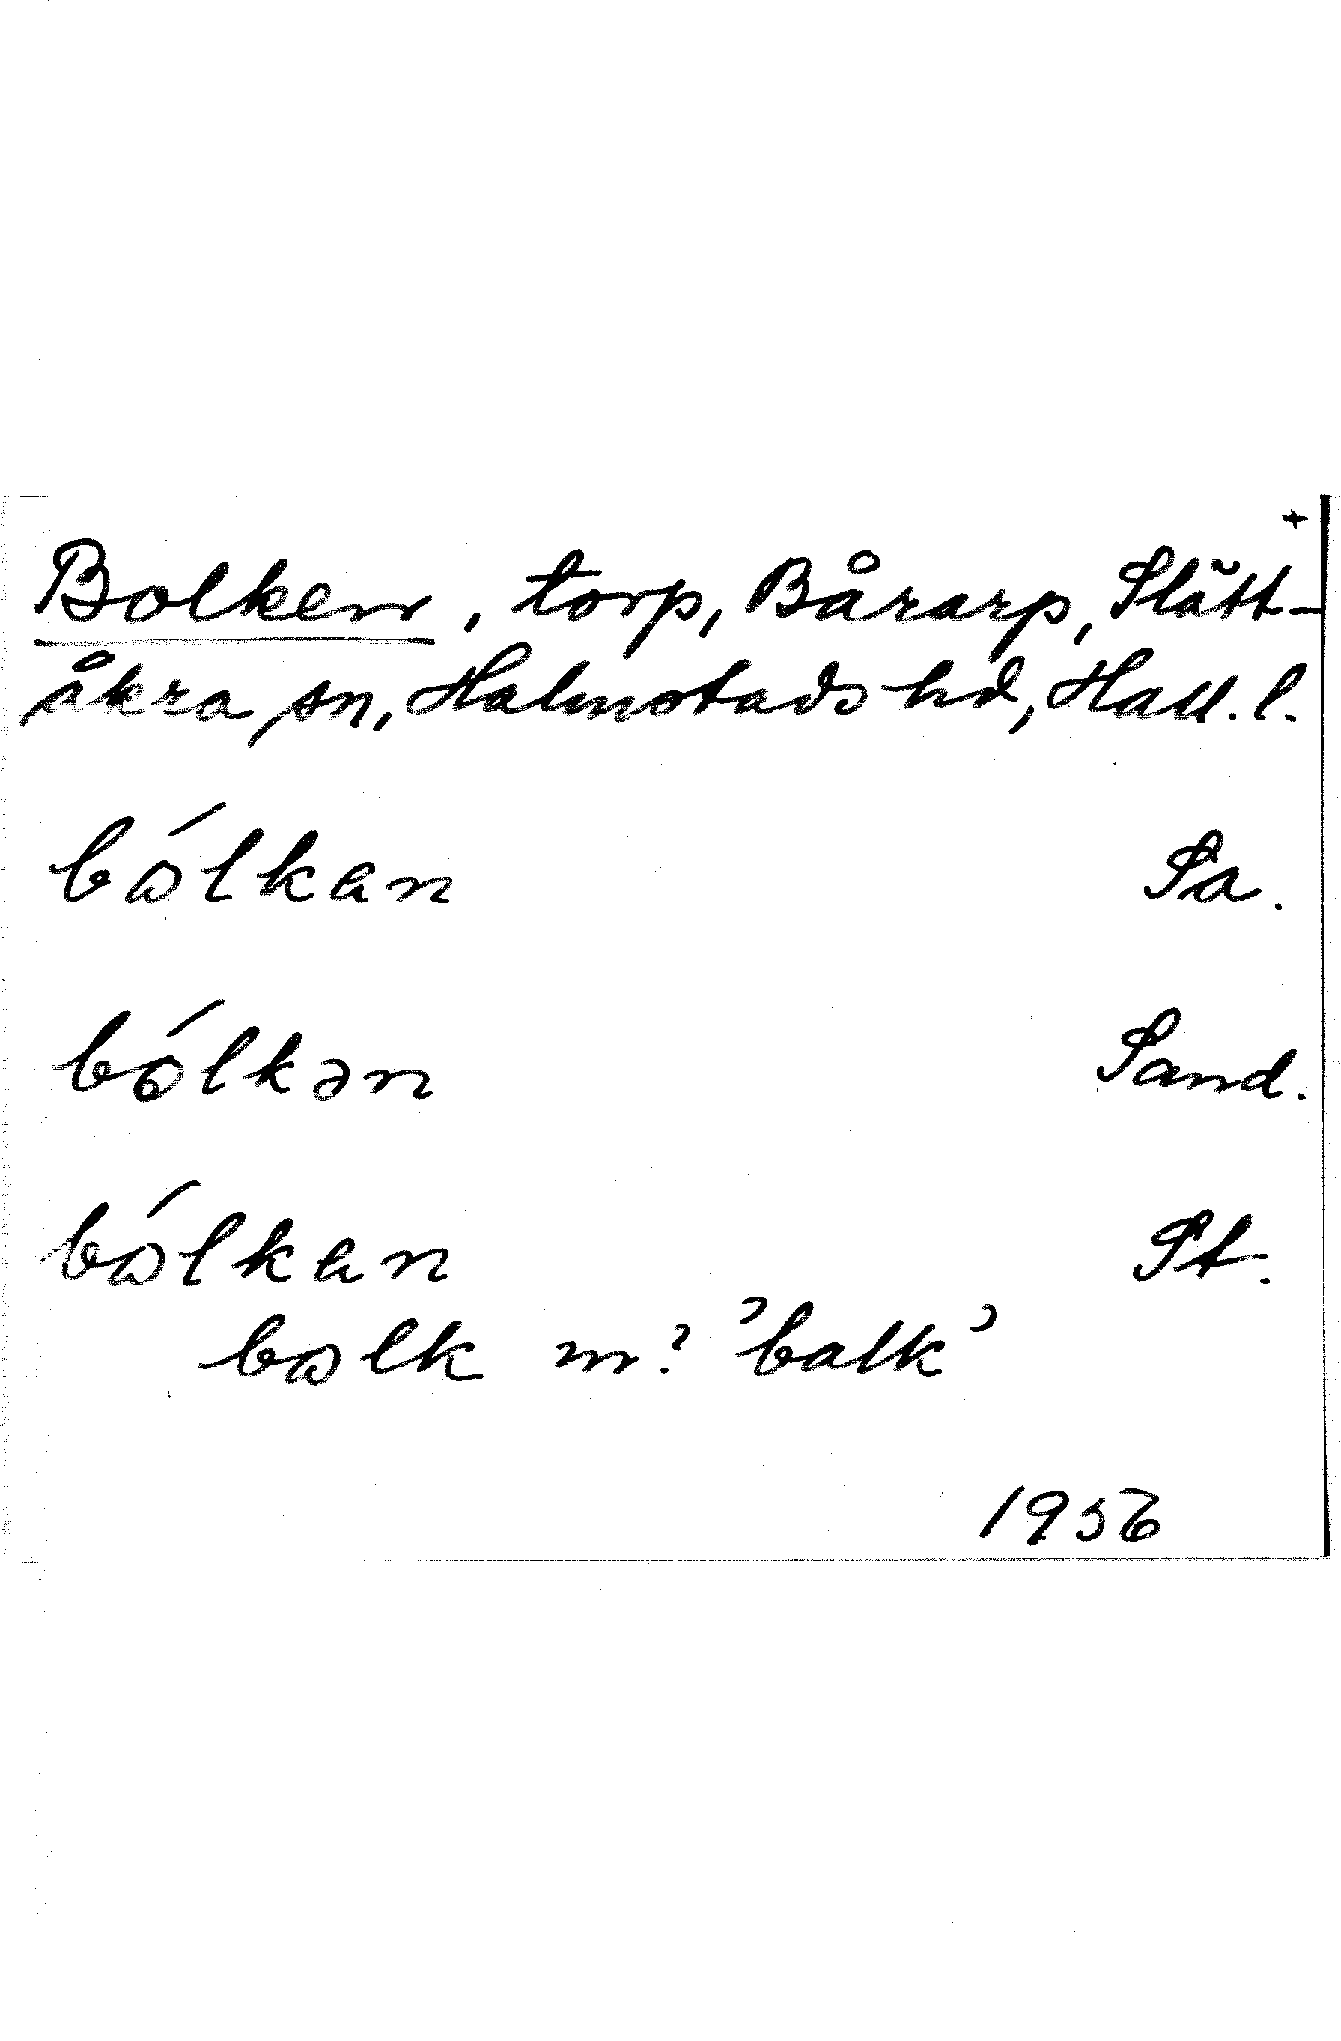 +
Bolken, torp, Bårarp, Slätt-
åkra sn, Halmstads hd, Hall. l.
bólkan Sa.
bólkən Sand.
bólkan St.
bolk m? 'balk'
1956